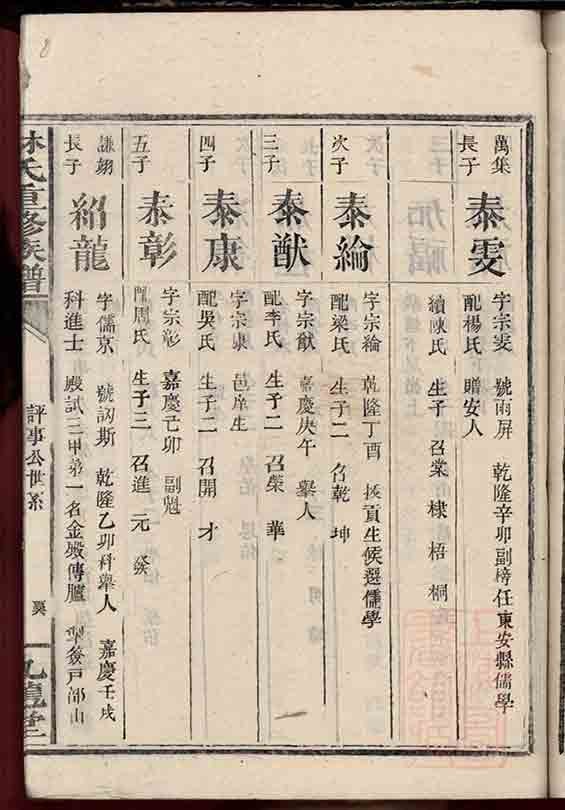 萬集
長子
泰雯
字宗雯 號雨屏 乾隆辛卯副榜任東安縣儒學
配楊氏 贈安人
續陳氏 生子 召棠 棣 梧 桐
次子
泰綸
字宗綸 乾隆丁酉 拔貢生候選儒學
配梁氏 生子二 召乾 坤
三子
泰猷
字宗猷 嘉慶庚午 舉人
配李氏 生子二 召榮 華
四子
泰康
字宗康 邑庠生
配吳氏 生子二 召開 才
五子
泰彰
字宗彰 嘉慶己卯 副魁
配周氏 生子三 召進 元 發
謙翊
長子
紹龍
字儒京 號訒斯 乾隆乙卯科舉人 嘉慶壬戌
科進士 殿試三甲第一名金殿傳臚 戶部山
林氏重修族譜
評事公世系
九龍堂
8